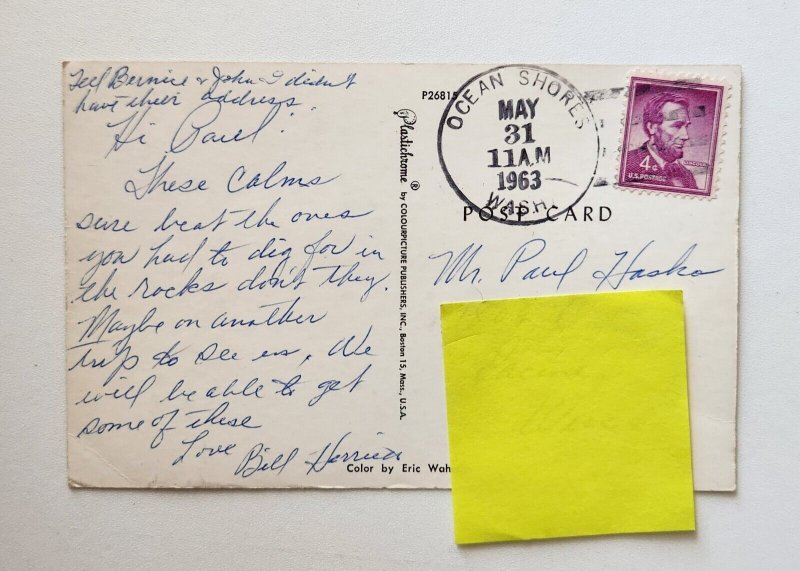 Tell Bernice & John I didn't
have their address.
Hi Paul!
These Calms
sure beat the ones
you had to dig for in
the rocks don't they.
Maybe on another
trip to see us, We
will be able to get
some of these
Love
Bill
P26815
Plastichrome ® by COLOURPICTURE PUBLISHERS, INC., Boston 15, Mass., U.S.A.
Color by Eric Wah
OCEAN SHORES
MAY
31
11 AM
1963
WASH.
4¢
LINCOLN
U.S. POSTAGE
POST CARD
Mr. Paul Hasko